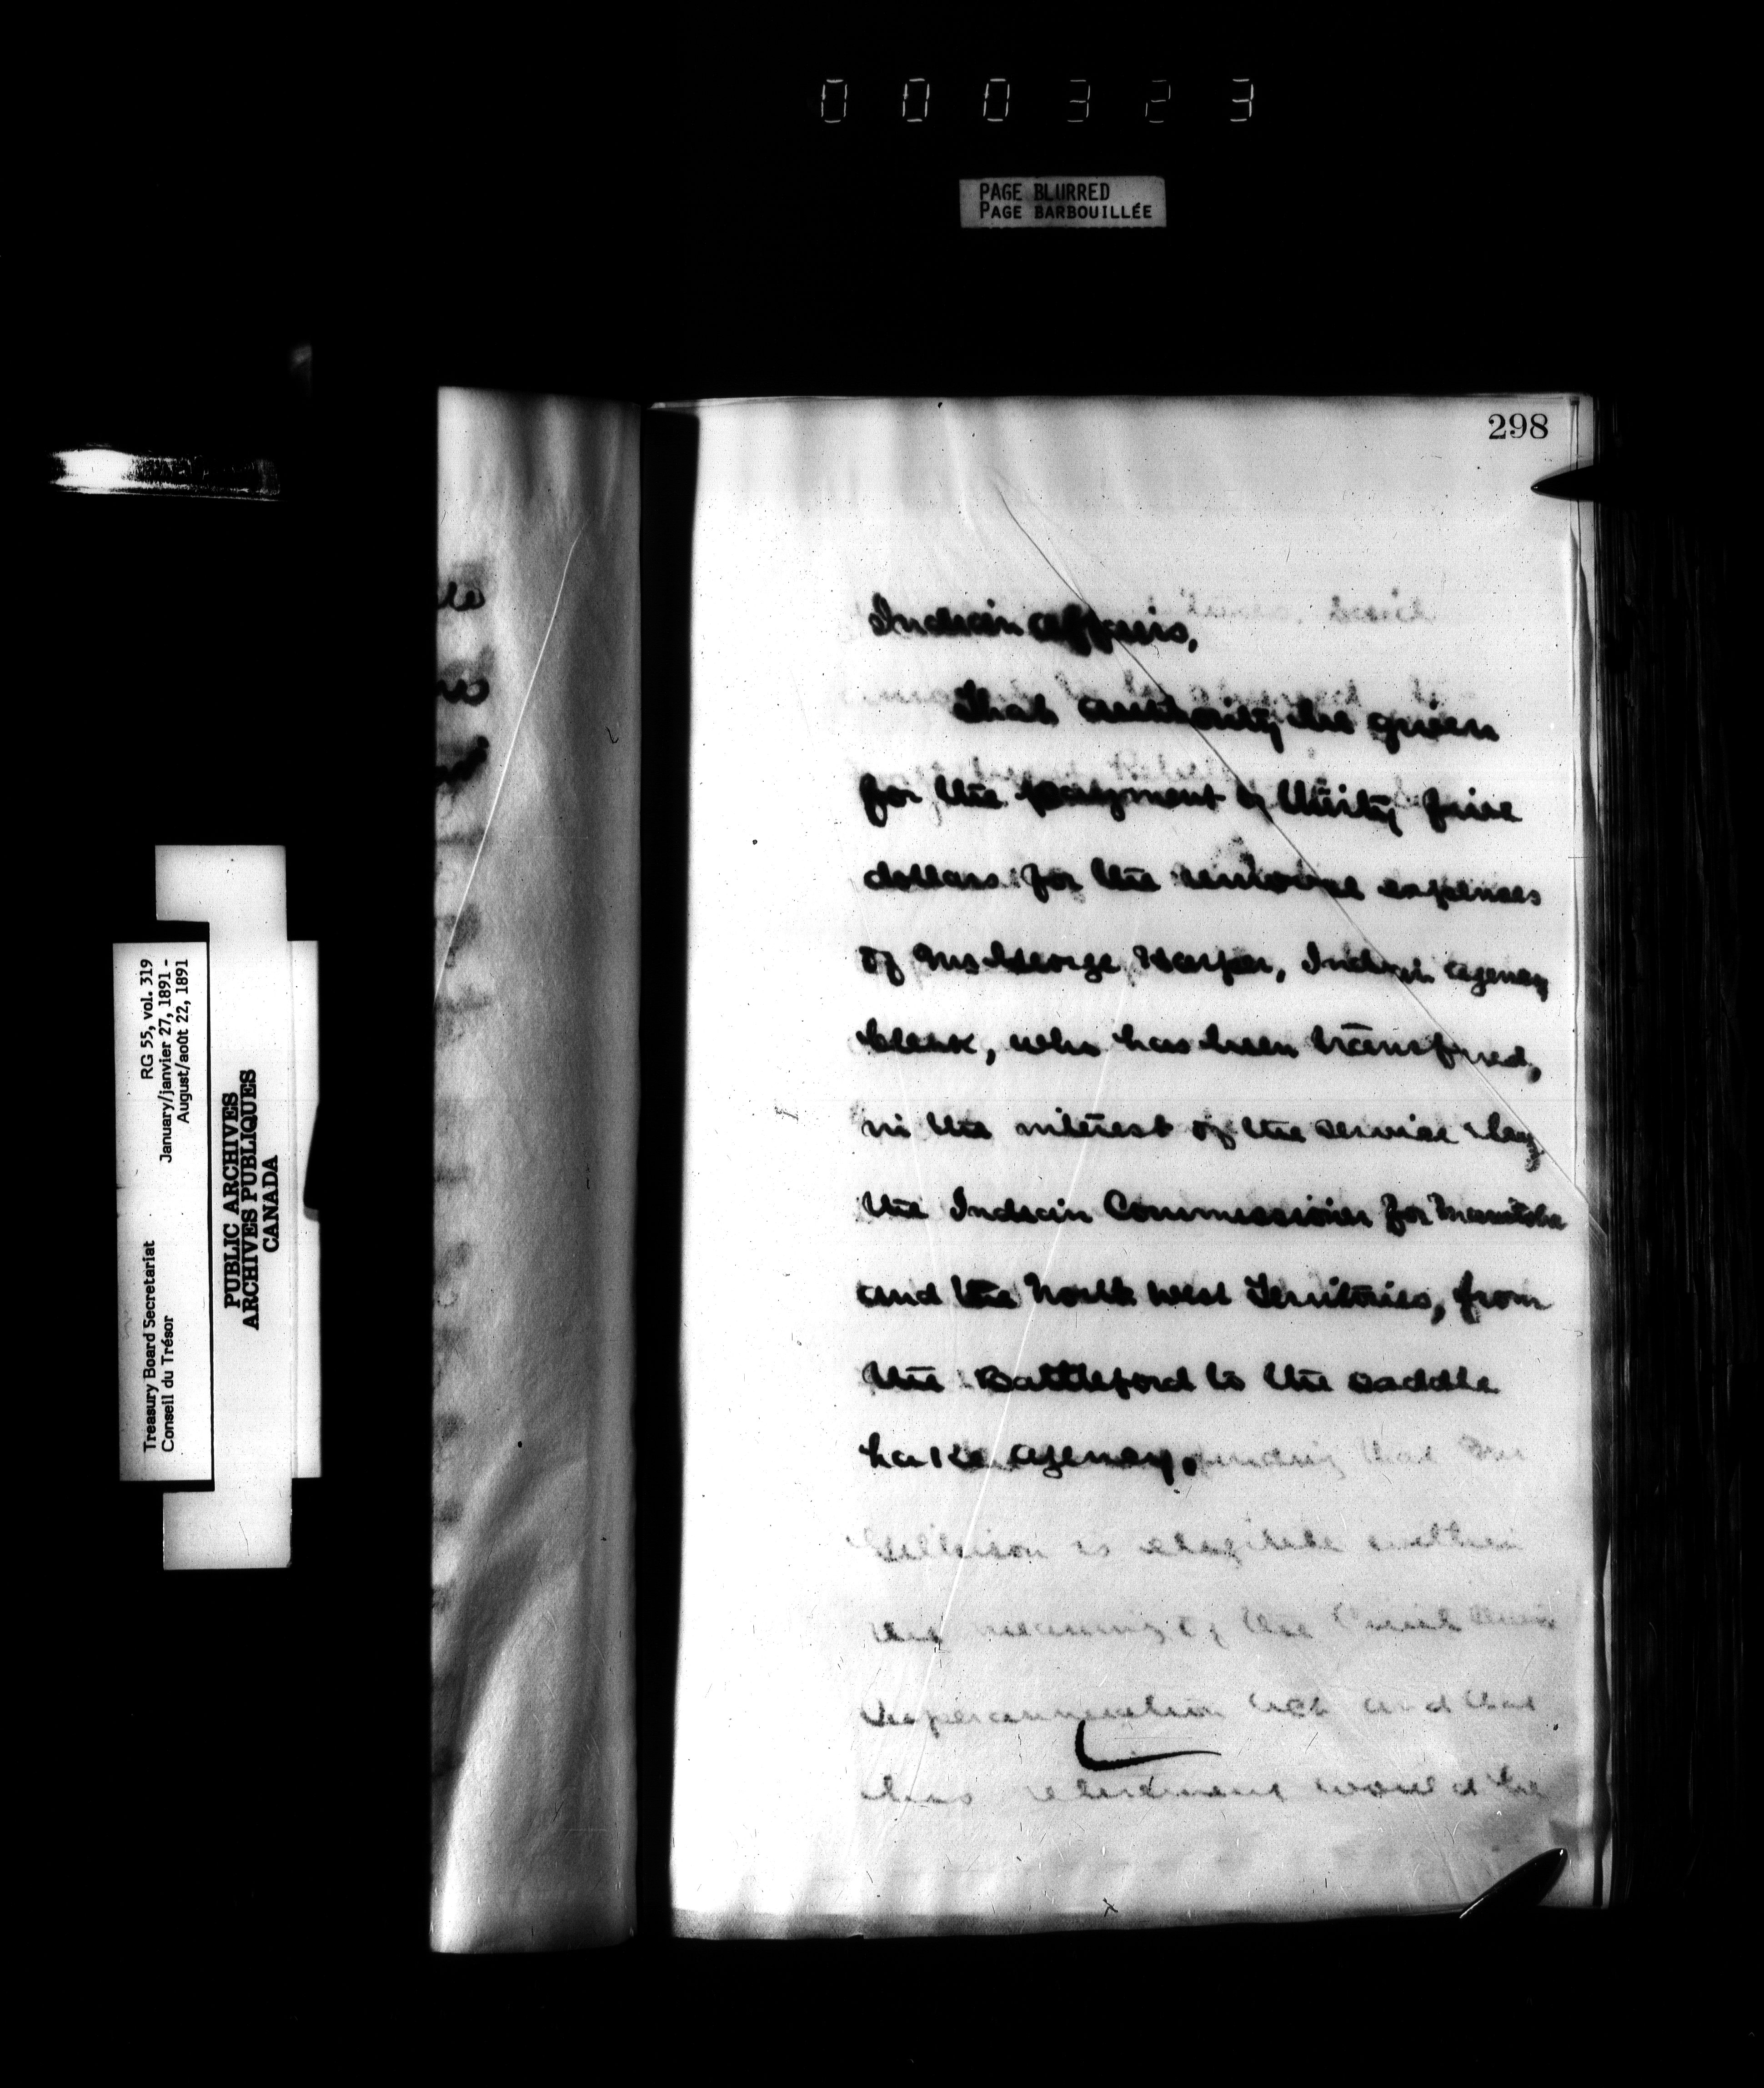 000323
PAGE BLURRED
PAGE BARBOUILLÉE
298
Indian Affairs,
That authority be given
for the payment of thirty five
dollars for the removal expenses
of Mr George Harper, Indian Agency
Clerk, who has been transferred,
in the interest of the service by
the Indian Commissioner for Manitoba
and the North West Territories, from
the Battleford to the Saddle
Lake Agency.
that Mr
Gilkison is eligible within
the meaning of the Civil Service
Superannuation Act and that
his retirement would be
Treasury Board Secretariat RG 55, vol. 319
Conseil du Trésor January/janvier 27, 1891 -
August/août 22, 1891
PUBLIC ARCHIVES
ARCHIVES PUBLIQUES
CANADA